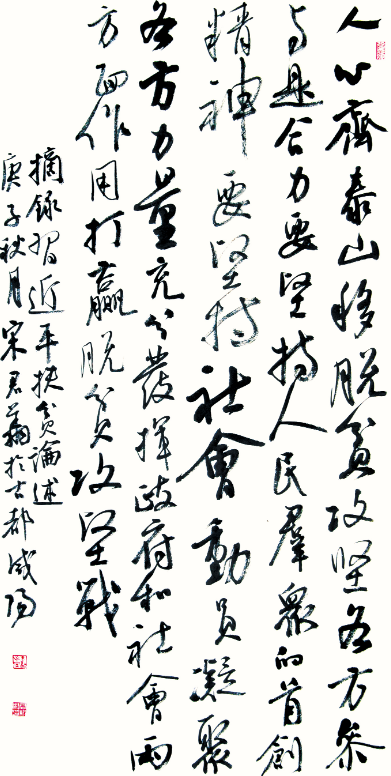 人心齊泰山移脱貧攻堅各方參
与是合力要堅持人民群衆的首創
精神要堅持社會動員凝聚
各方力量充分發揮政府和社會兩
方面作用打贏脱貧攻堅戰
摘録習近平扶貧論述
庚子秋月宋君 於古都咸陽